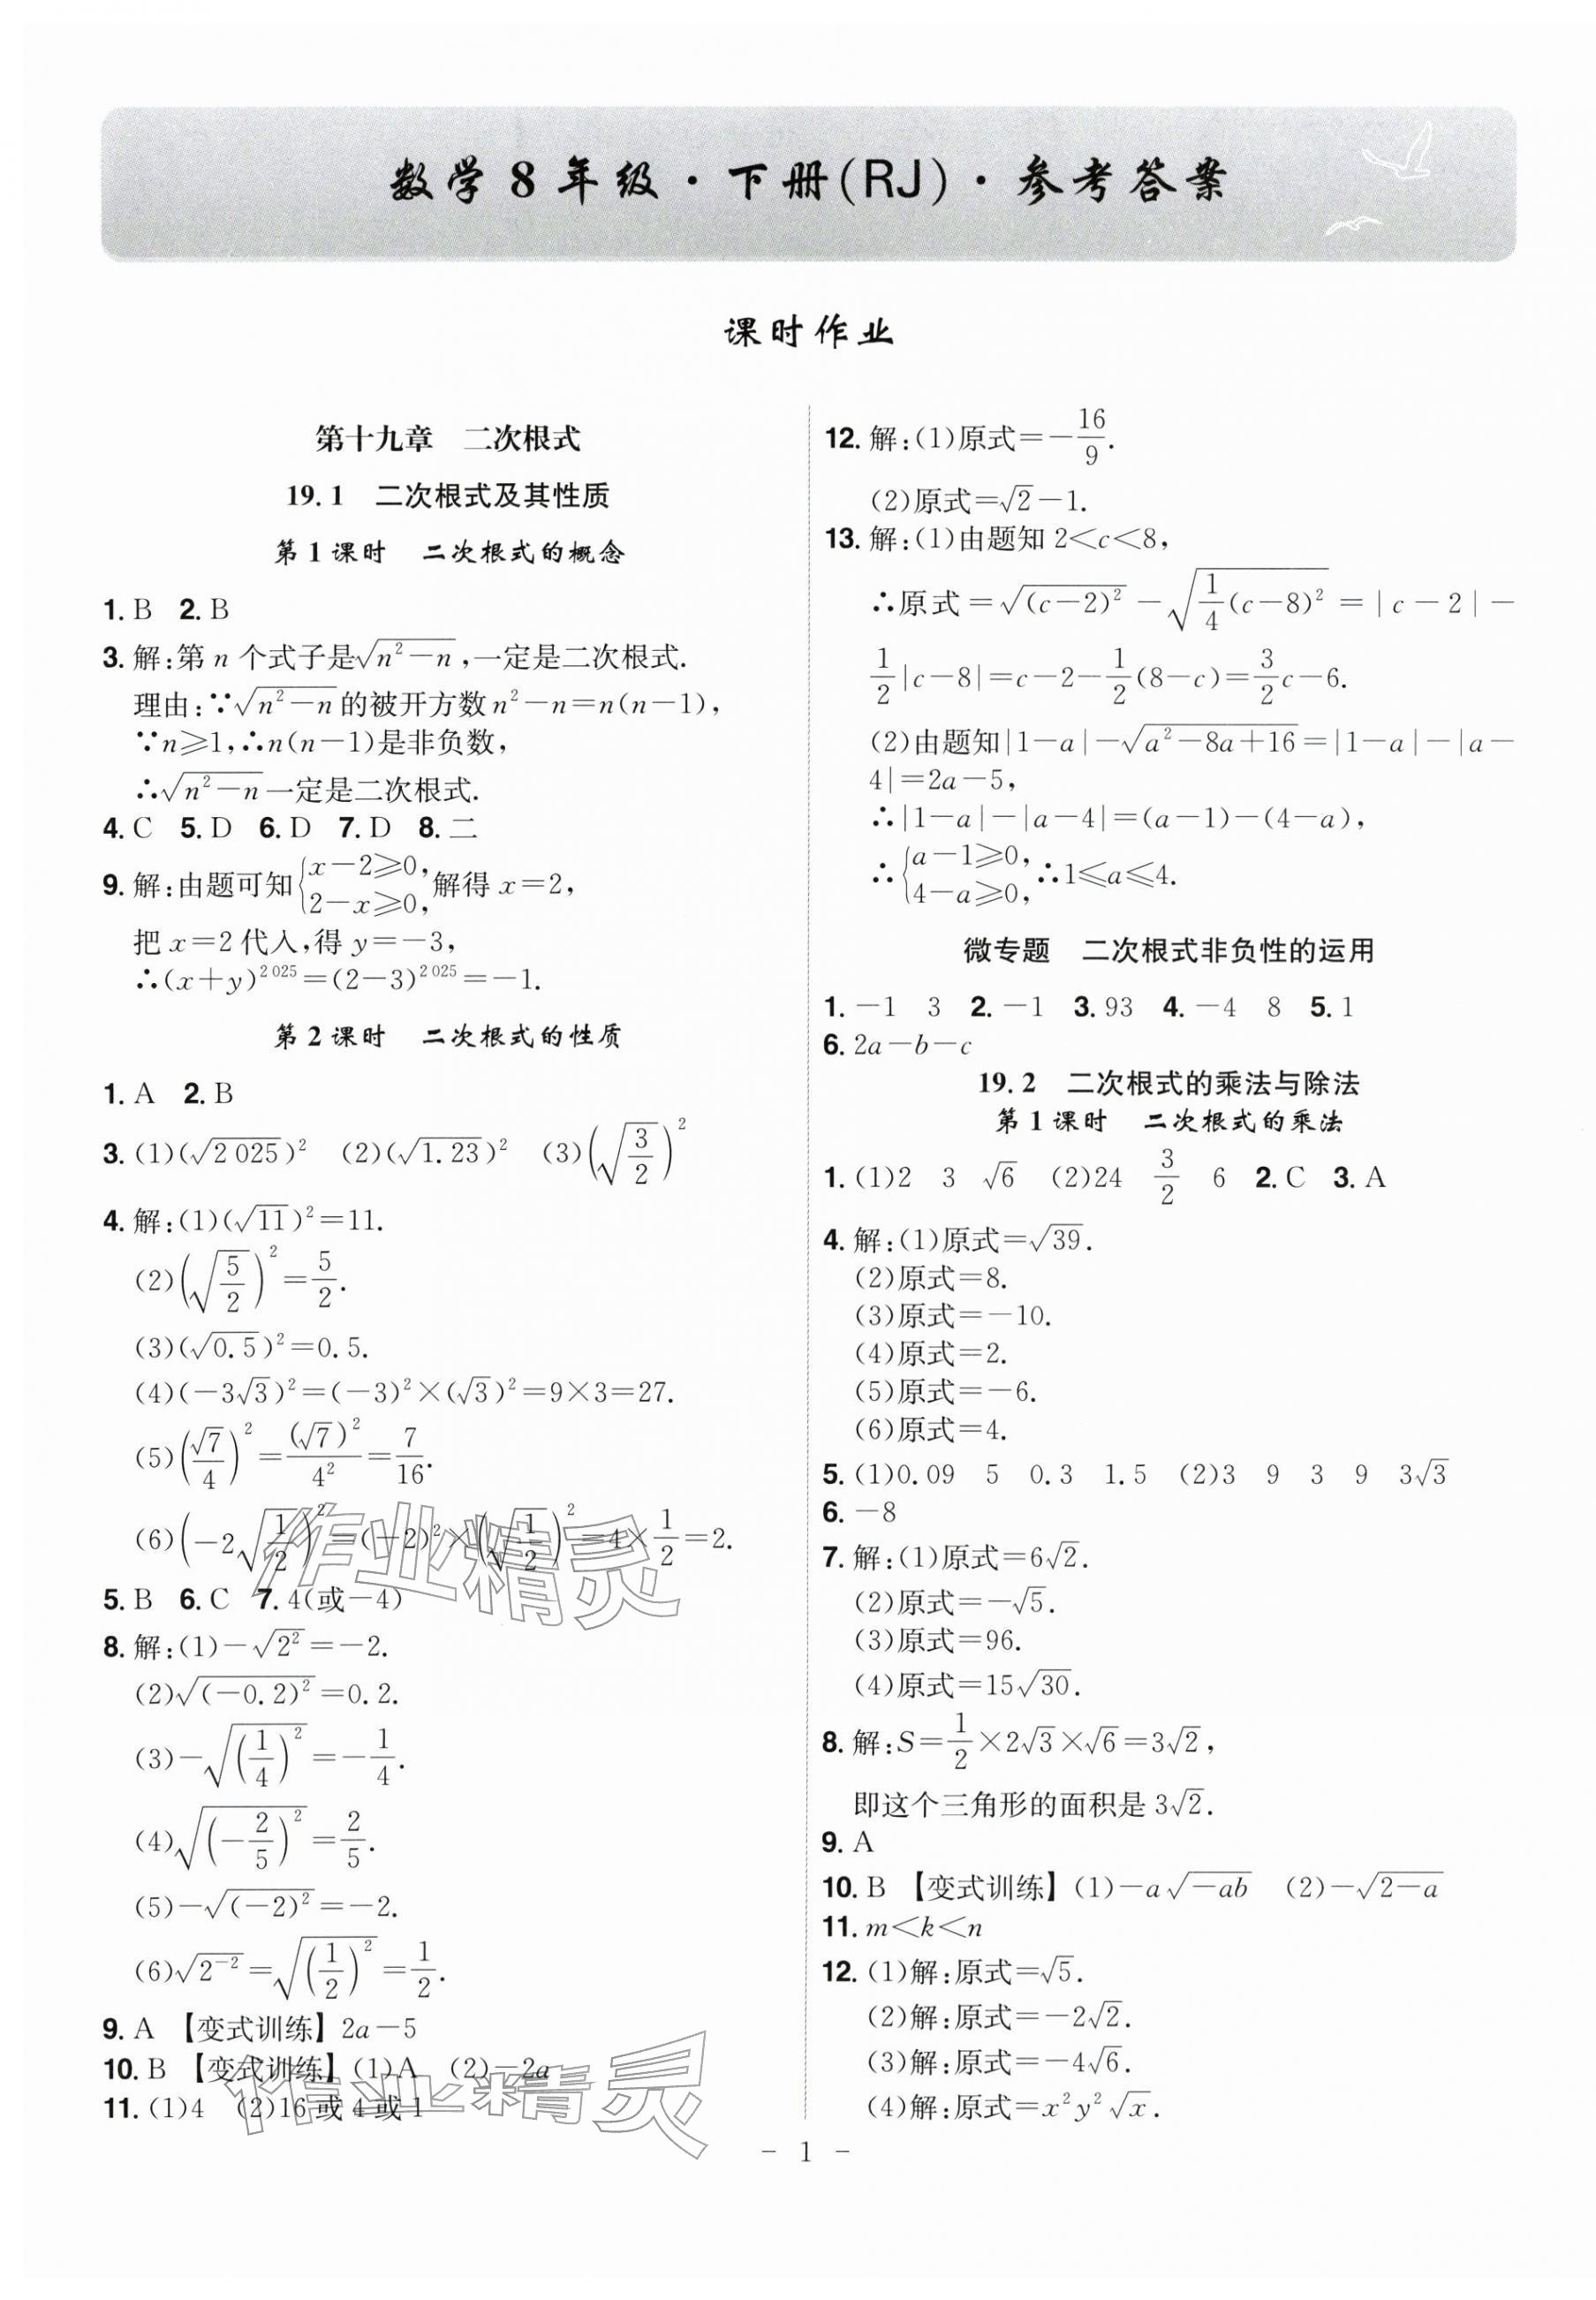 数学8年级·下册(RJ)·参考答案
课时作业
第十九章 二次根式
19.1 二次根式及其性质
第1课时 二次根式的概念
1. B 2. B
3. 解:第 n 个式子是√(n²-n),一定是二次根式.
理由:∵√(n²-n)的被开方数 n²-n=n(n-1),
∵n≥1,∴n(n-1)是非负数,
∴√(n²-n)一定是二次根式.
4. C 5. D 6. D 7. D 8. 二
9. 解:由题可知{x-2≥0, 2-x≥0,解得 x=2,
把 x=2 代入,得 y=-3,
∴(x+y)^2 025=(2-3)^2 025=-1.
第2课时 二次根式的性质
1. A 2. B
3. (1)(√2 025)² (2)(√1.23)² (3)(√(3/2))²
4. 解:(1)(√11)²=11.
(2)(√(5/2))²=5/2.
(3)(√0.5)²=0.5.
(4)(-3√3)²=(-3)²×(√3)²=9×3=27.
(5)(√7/4)²=(√7)²/4²=7/16.
(6)(-2√(1/2))²=(-2)²×(√(1/2))²=4×1/2=2.
5. B 6. C 7. 4(或-4)
8. 解:(1)-√(2²)=-2.
(2)√((-0.2)²)=0.2.
(3)-√((1/4)²)=-1/4.
(4)√((-2/5)²)=2/5.
(5)-√((-2)²)=-2.
(6)√(2⁻²)=√((1/2)²)=1/2.
9. A 【变式训练】2a-5
10. B 【变式训练】(1)A (2)-2a
11. (1)4 (2)16 或 4 或 1
12. 解:(1)原式=-16/9.
(2)原式=√2-1.
13. 解:(1)由题知 2<c<8,
∴原式=√((c-2)²)-√(1/4(c-8)²)=|c-2|-
1/2|c-8|=c-2-1/2(8-c)=3/2c-6.
(2)由题知|1-a|-√(a²-8a+16)=|1-a|-|a-
4|=2a-5,
∴|1-a|-|a-4|=(a-1)-(4-a),
∴{a-1≥0, 4-a≥0,∴1≤a≤4.
微专题 二次根式非负性的运用
1. -1 3 2. -1 3. 93 4. -4 8 5. 1
6. 2a-b-c
19.2 二次根式的乘法与除法
第1课时 二次根式的乘法
1. (1)2 3 √6 (2)24 3/2 6 2. C 3. A
4. 解:(1)原式=√39.
(2)原式=8.
(3)原式=-10.
(4)原式=2.
(5)原式=-6.
(6)原式=4.
5. (1)0.09 5 0.3 1.5 (2)3 9 3 9 3√3
6. -8
7. 解:(1)原式=6√2.
(2)原式=-√5.
(3)原式=96.
(4)原式=15√30.
8. 解:S=1/2×2√3×√6=3√2,
即这个三角形的面积是 3√2.
9. A
10. B 【变式训练】(1)-a√(-ab) (2)-√(2-a)
11. m<k<n
12. (1)解:原式=√5.
(2)解:原式=-2√2.
(3)解:原式=-4√6.
(4)解:原式=x²y²√x.
作业精灵
作业精灵
- 1 -